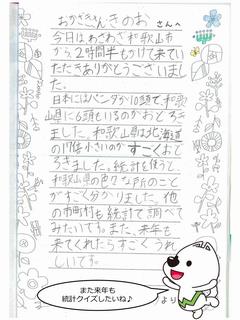 おかざきさん きのお さんへ
今日はわざわざ和歌山市
から2時間半もかけて来てい
ただきありがとうございまし
た。
日本にはパンダが10頭で、和歌
山県に6頭いるのがおどろ
きました。和歌山県は北海道
の 小さいのが すごくおど
ろきました。統計を使うと、
和歌山県の色々な所のこと
がすごく分かりました。他
の市町村も統計で調べて
みたいです。また、来年も
来てくれたらすごくうれ
しいです。
より
また来年も
統計クイズしたいね♪